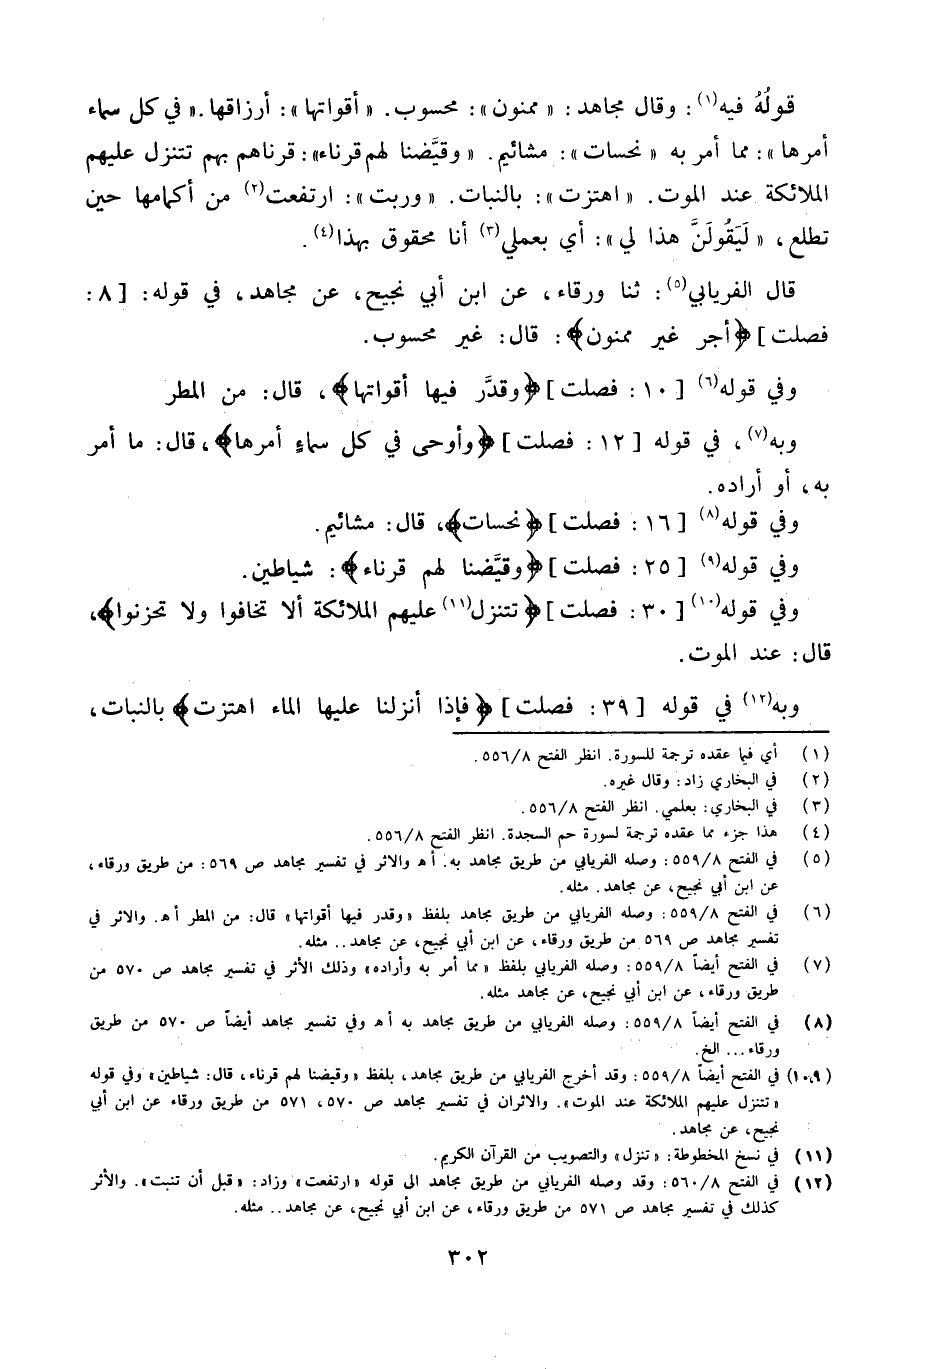 قولُهُ فيه(١): وقال مجاهد: « ممنون»: محسوب. « أقواتها»: أرزاقها.« في كل سماء
أمرها»: مما أمر به « نحسات»: مشائيم. « وقيَّضنا لهم قرناء»: قرناهم بهم تتنزل عليهم
الملائكة عند الموت. « اهتزت»: بالنبات. « وربت»: ارتفعت(٢) من أكمامها حين
تطلع، « لَيَقُولَنَّ هذا لي»: أي بعملي(٣) أنا محقوق بهذا(٤).
قال الفريابي(٥): ثنا ورقاء، عن ابن أبي نجيح، عن مجاهد، في قوله: [ ٨:
فصلت] ﴿أجر غير ممنون﴾: قال: غير محسوب.
وفي قوله(٦) [ ١٠: فصلت] ﴿وقدَّر فيها أقواتها﴾، قال: من المطر
وبه(٧)، في قوله [ ١٢: فصلت] ﴿وأوحى في كل سماءٍ أمرها﴾، قال: ما أمر
به، أو أراده.
وفي قوله(٨) [ ١٦: فصلت] ﴿نحسات﴾، قال: مشائيم.
وفي قوله(٩) [ ٢٥: فصلت] ﴿وقيَّضنا لهم قرناء﴾: شياطين.
وفي قوله(١٠) [ ٣٠: فصلت] ﴿تتنزل(١١) عليهم الملائكة ألا تخافوا ولا تحزنوا﴾،
قال: عند الموت.
وبه(١٢) في قوله [ ٣٩: فصلت] ﴿فإذا أنزلنا عليها الماء اهتزت﴾ بالنبات،
(١) أي فيما عقده ترجمة للسورة. انظر الفتح ٥٥٦/٨.
(٢) في البخاري زاد: وقال غيره.
(٣) في البخاري: بعلمي. انظر الفتح ٥٥٦/٨.
(٤) هذا جزء مما عقده ترجمة لسورة حم السجدة. انظر الفتح ٥٥٦/٨.
(٥) في الفتح ٥٥٩/٨: وصله الفريابي من طريق مجاهد به. أ هـ والاثر في تفسير مجاهد ص ٥٦٩: من طريق ورقاء،
عن ابن أبي نجيح، عن مجاهد. مثله.
(٦) في الفتح ٥٥٩/٨: وصله الفريابي من طريق مجاهد بلفظ «وقدر فيها أقواتها» قال: من المطر أ هـ. والاثر في
تفسير مجاهد ص ٥٦٩ من طريق ورقاء، عن ابن أبي نجيح، عن مجاهد.. مثله.
(٧) في الفتح أيضاً ٥٥٩/٨: وصله الفريابي بلفظ «مما أمر به وأراده» وذلك الأثر في تفسير مجاهد ص ٥٧٠ من
طريق ورقاء، عن ابن أبي نجيح، عن مجاهد مثله.
(٨) في الفتح أيضاً ٥٥٩/٨: وصله الفريابي من طريق مجاهد به أ هـ وفي تفسير مجاهد أيضاً ص ٥٧٠ من طريق
ورقاء... الخ.
(١٠،٩) في الفتح أيضاً ٥٥٩/٨: وقد أخرج الفريابي من طريق مجاهد، بلفظ «وقيضنا لهم قرناء، قال: شياطين» وفي قوله
«تتنزل عليهم الملائكة عند الموت». والاثران في تفسير مجاهد ص ٥٧٠، ٥٧١ من طريق ورقاء عن ابن أبي
نجيح، عن مجاهد.
(١١) في نسخ المخطوطة: «تنزل» والتصويب من القرآن الكريم.
(١٢) في الفتح ٥٦٠/٨: وقد وصله الفريابي من طريق مجاهد الى قوله «ارتفعت» وزاد: «قبل أن تنبت». والأثر
كذلك في تفسير مجاهد ص ٥٧١ من طريق ورقاء، عن ابن أبي نجيح، عن مجاهد.. مثله.
٣٠٢